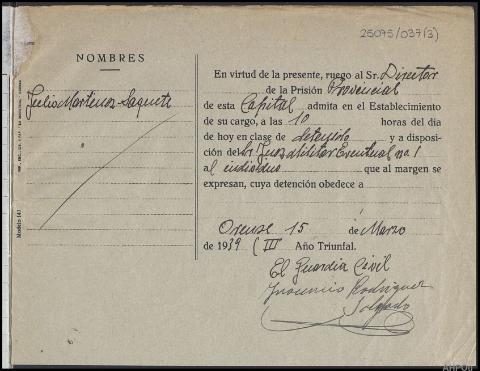 25075/037(3)
NOMBRES
Julio Martinez Saquete
En virtud de la presente, ruego al Sr. Director
de la Prisión Provincial
de esta Capital admita en el Establecimiento
de su cargo, a las 10 horas del día
de hoy en clase de detenido y a disposi-
ción del Sr. Juez Militar Eventual nº 1
al individuo que al margen se
expresan, cuya detención obedece a
Orense 15 de Marzo
de 1939 (III Año Triunfal.
El Guardia Civil
Inocencio Rodriguez
Salgado
Modelo 141
AHPOu